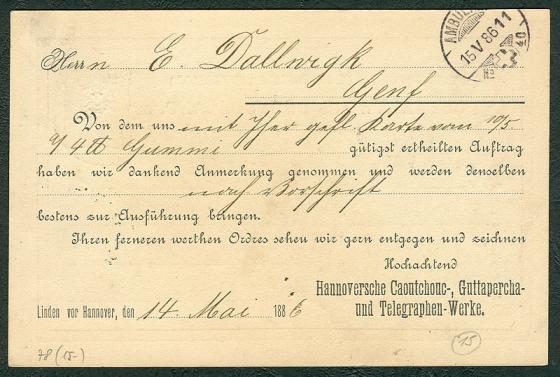 AMBULANT
15 V 86 11
No 40
Herrn E. Dallwigk
Genf
Von dem uns mit Ihrer gefl. Karte vom 10/5
4 ℔ Gummi gütigst ertheilten Auftrag
haben wir dankend Anmerkung genommen und werden denselben
nach Vorschrift
bestens zur Ausführung bringen.
Ihren ferneren werthen Ordres sehen wir gern entgegen und zeichnen
Hochachtend
Hannoversche Caoutchouc-, Guttapercha-
und Telegraphen-Werke.
Linden vor Hannover, den 14. Mai 1886
78 (15-)
15